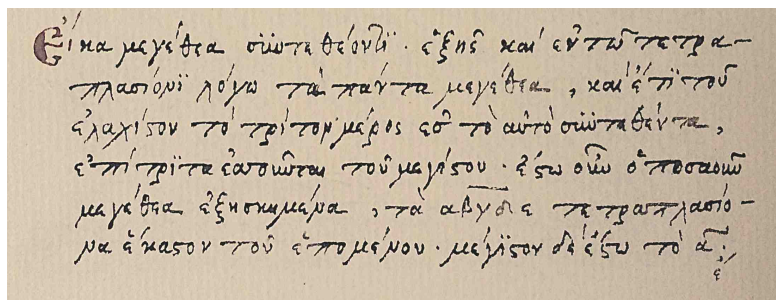 Εἴ κα μεγέθεα συντεθέοντι · ἑξῆς καὶ ἐν τῶ τετρα-
πλασίονι λόγω τὰ πάντα μεγέθεα, καὶ ἔτι τοῦ
ἐλαχίστου τὸ τρίτον μέρος ἐς τὸ αὐτὸ συντεθέντα,
ἐπίτριτα ἐσσοῦνται τοῦ μεγίστου · ἔστω οὖν ὁποσαοῦν
μεγέθεα ἑξῆς κείμενα, τὰ αβγδε τετραπλασίο-
να ἕκαστον τοῦ ἑπομένου · μέγιστον δὲ ἔστω τὸ α ·